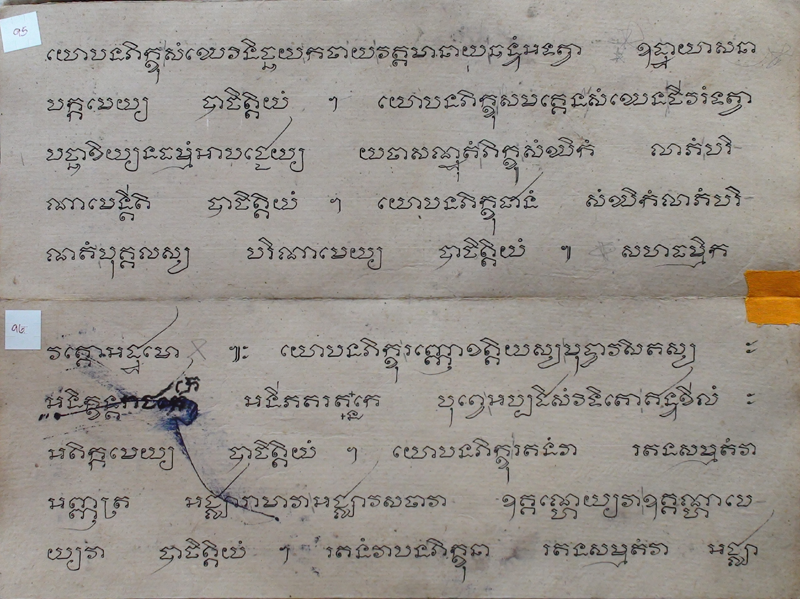 ๑๕
យោបនភិក្ខុសំឃេវិនិច្ឆយកថាយវត្តមានាយឆន្ទំអទត្វា ឧដ្ឋាយាសនា
បក្កមេយ្យ បាចិត្តិយំ ៗ យោបនភិក្ខុសមគ្គេនសំឃេនចីវរំទត្វា
បច្ឆាខិយ្យនធម្មំអាបជ្ជេយ្យ យថាសណ្ឋុតំភិក្ខុសំឃិកំ លាភំបរិ-
ណាមេន្តីតិ បាចិត្តិយំ ៗ យោបនភិក្ខុជានំ សំឃិកំលាភំបរិ-
ណតំបុគ្គលស្ស បរិណាមេយ្យ បាចិត្តិយំ ៗ សហធម្មិក
๑๖
វគ្គោអដ្ឋមោ ៕ៈ យោបនភិក្ខុរញ្ញោខត្តិយស្សមុទ្ធាវសិតស្ស ៈ
អនិក្ខន្តរាជកេ អនីភតរត្នកេ បុព្វេអប្បដិសំវិទិតោឥន្ទខីលំ ៈ
អតិក្កមេយ្យ បាចិត្តិយំ ៗ យោបនភិក្ខុរតនំវា រតនសម្មតំវា
អញ្ញត្រ អជ្ឈារាមាវាអជ្ឈាវសថាវា ឧគ្គណ្ហេយ្យវាឧគ្គណ្ហាបេ-
យ្យវា បាចិត្តិយំ ៗ រតនំវាបនភិក្ខុនា រតនសម្មតំវា អជ្ឈា